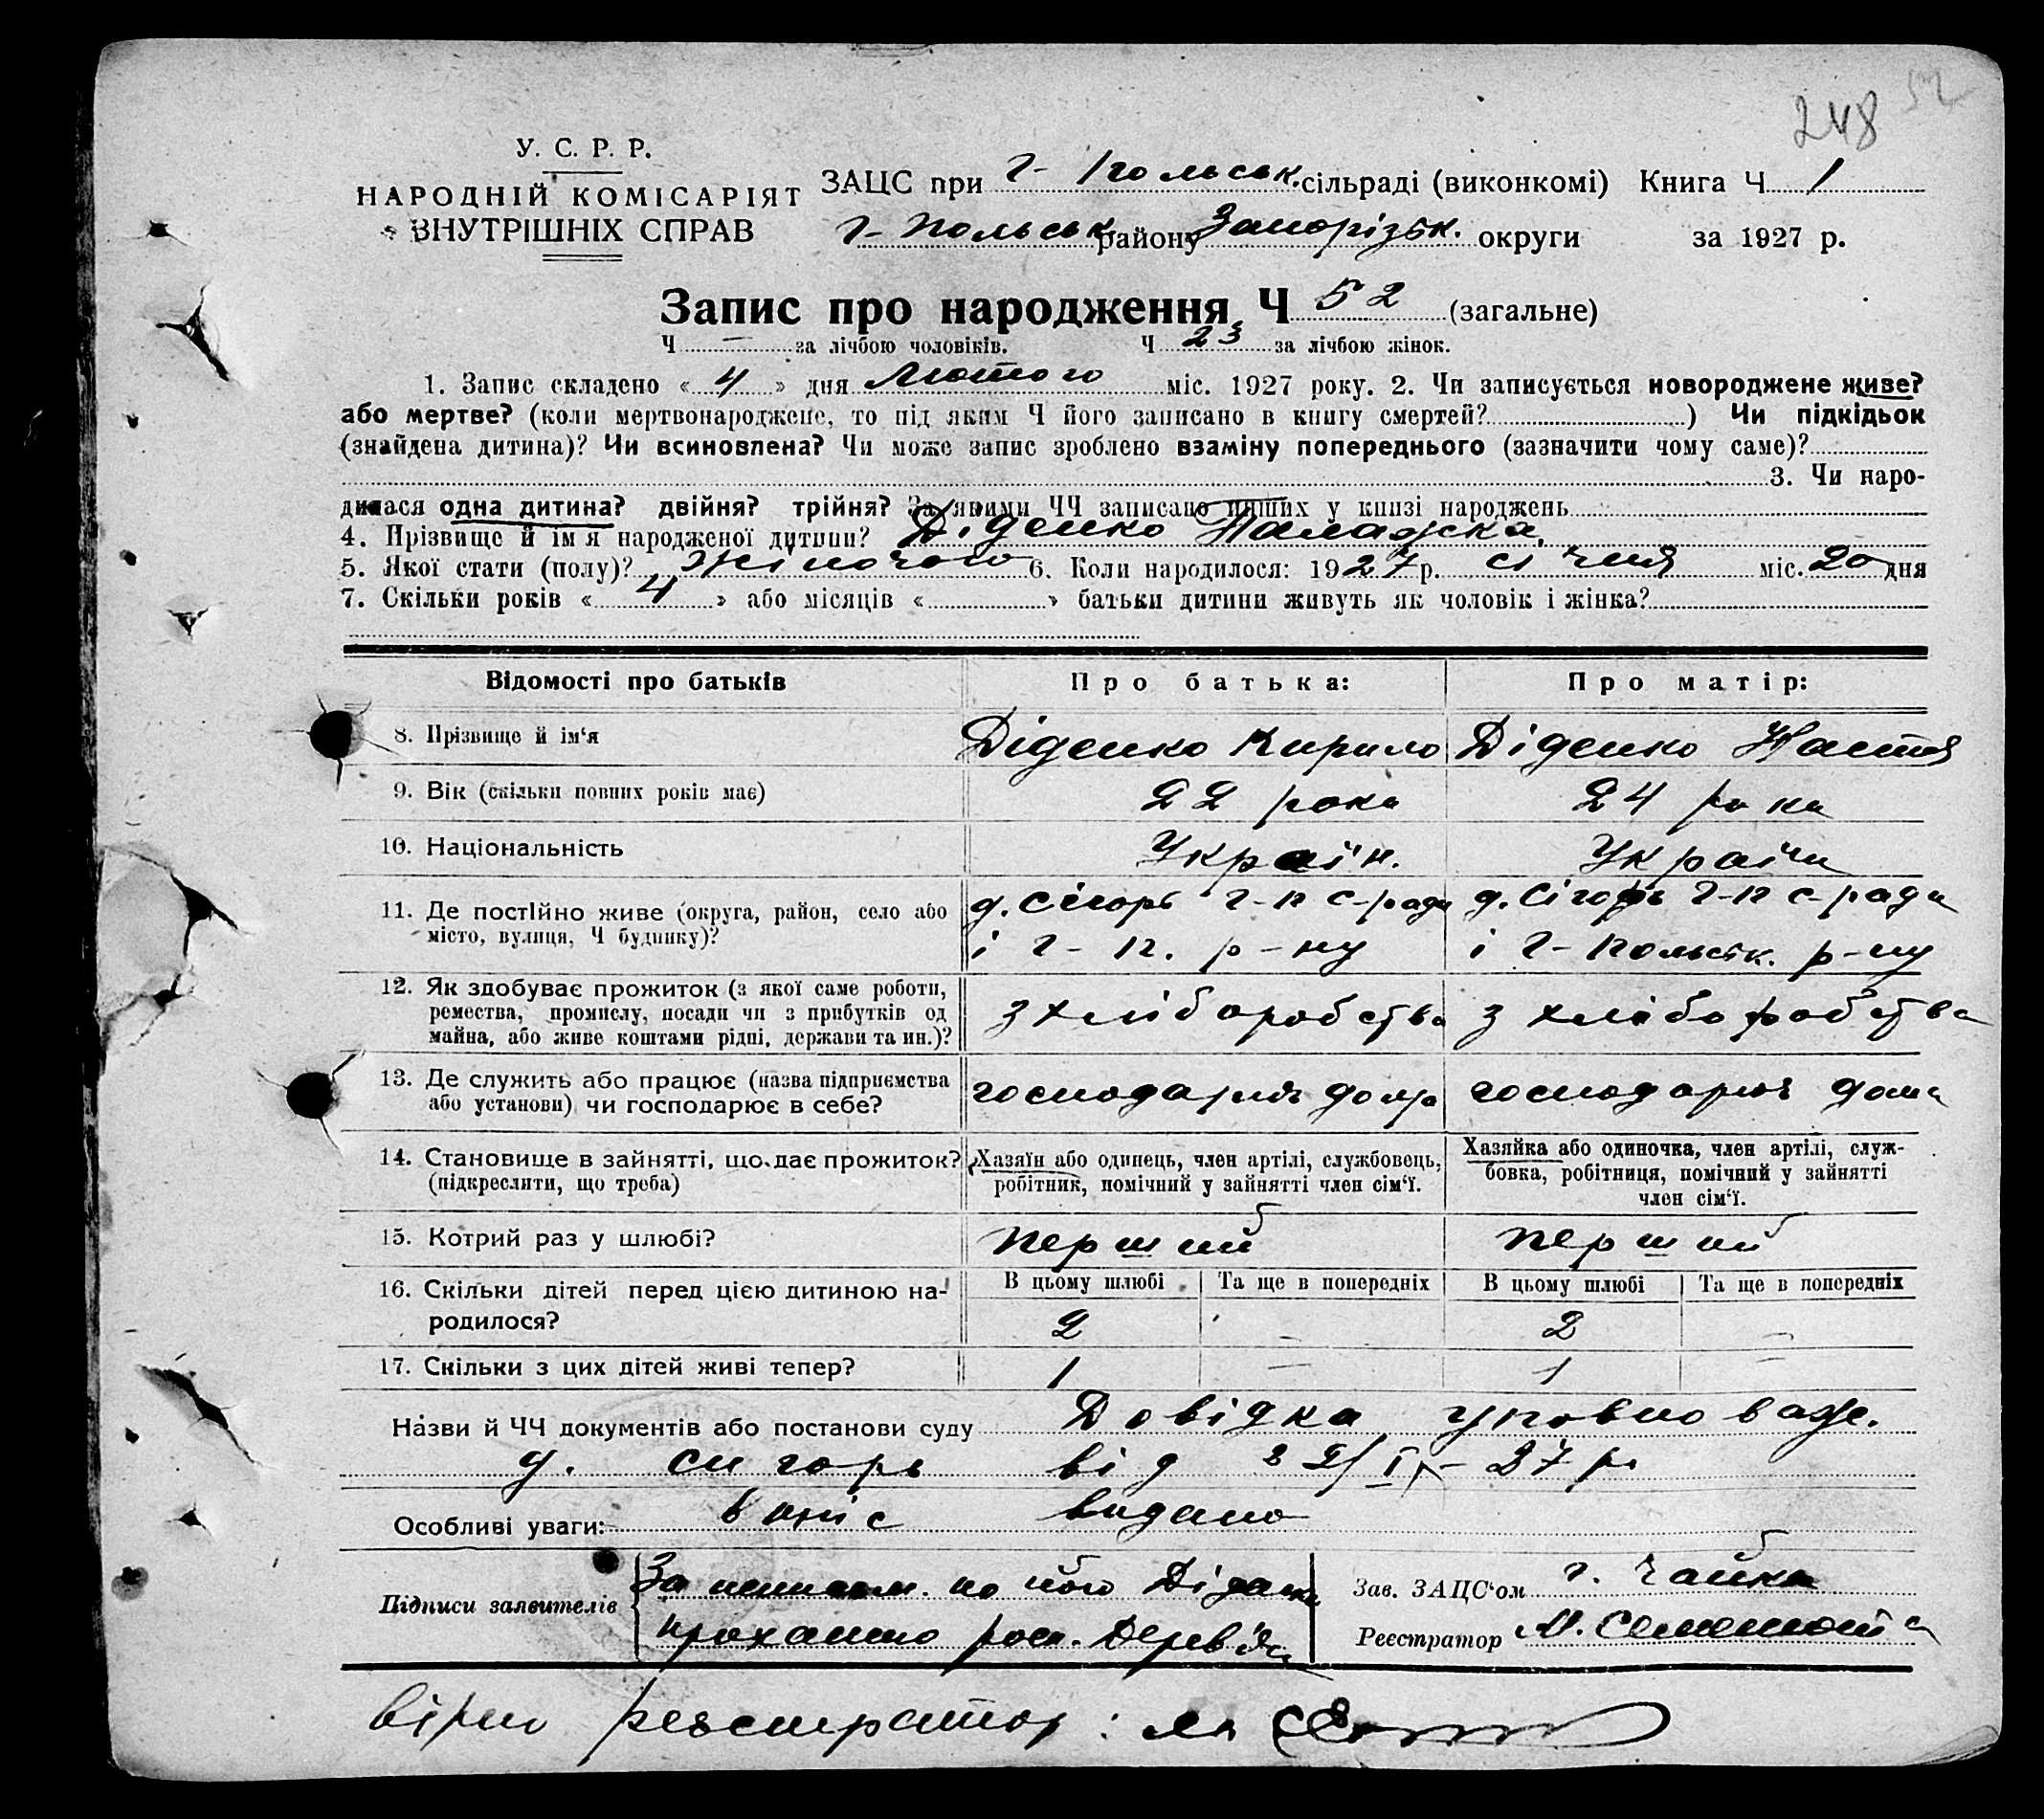 248 52
У. С. Р. Р.
НАРОДНІЙ КОМІСАРІЯТ
ВНУТРІШНІХ СПРАВ
ЗАЦС при Г-Польськ. сільраді (виконкомі) Книга Ч 1
Г-Польськ. району Запорізьк. округи за 1927 р.
Запис про народження Ч 52 (загальне)
Ч — за лічбою чоловіків. Ч 23 за лічбою жінок.
1. Запис складено « 4 » дня Лютого міс. 1927 року. 2. Чи записується новороджене живе?
або мертве? (коли мертвонароджене, то під яким Ч його записано в книгу смертей? ) Чи підкідьок
(знайдена дитина)? Чи всиновлена? Чи може запис зроблено взаміну попереднього (зазначити чому саме)?
3. Чи наро-
дилася одна дитина? двійня? трійня? За якими ЧЧ записано инших у книзі народжень
4. Прізвище й ім'я народженої дитини? Діденко Палажка
5. Якої стати (полу)? Жіночого 6. Коли народилося: 1927 р. січня міс. 20 дня
7. Скільки років « 4 » або місяців « » батьки дитини живуть як чоловік і жінка?
Відомості про батьків Про батька: Про матір:
8. Прізвище й ім'я Діденко Кирило Діденко Настя
9. Вік (скільки повних років має) 22 роки 24 роки
10. Національність Україн. Україн
11. Де постійно живе (округа, район, село або місто, вулиця, Ч будинку)? д. Сігорь Г-П с-ради д. Сігорь Г-П с-ради
і Г-П. р-ну і Г-Польськ. р-ну
12. Як здобуває прожиток (з якої саме роботи,
ремества, промислу, посади чи з прибутків од
майна, або живе коштами рідні, держави та ин.)? з хліборобства з хліборобства
13. Де служить або працює (назва підприємства
або установи) чи господарює в себе? господарює дома господарює дома
14. Становище в зайнятті, що дає прожиток?
(підкреслити, що треба)
Хазяїн або одинець, член артілі, службовець,
робітник, помічний у зайнятті член сім'ї.
Хазяйка або одиночка, член артілі, служ-
бовка, робітниця, помічний у зайнятті
член сім'ї.
15. Котрий раз у шлюбі? перший перший
16. Скільки дітей перед цією дитиною на-
родилося?
В цьому шлюбі Та ще в попередніх В цьому шлюбі Та ще в попередніх
2 — 2 —
17. Скільки з цих дітей живі тепер? 1 — 1 —
Назви й ЧЧ документів або постанови суду Довідка уповноваж.
д. Сигорь від 22/I - 27 р.
Особливі уваги: видано
Підписи заявителів За неписьм. по його Діденка
проханню росп. Дерев'
Зав. ЗАЦС'ом Г. Чайка
Реєстратор М.
вірно реєстратор: